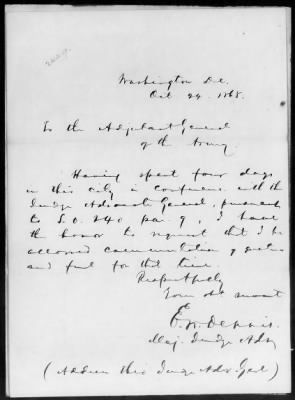 Washington D.C.
Oct 24 1868.
To the Adjutant General
of the Army
Having spent four days
in this city in conference with the
Judge Advocate General, pursuant
to S.O. 240 par 9, I have
the honor to request that I be
allowed commutation of quarters
and fuel for that time.
Respectfully
Your obt servant
E. W. Dennis.
Maj. Judge Adv.
(Address this Judge Adv Genl)